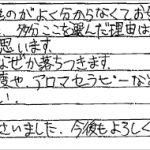 ものがよく分からなくてお
、多分ここを選んだ理由は
思います。
なぜか落ちつきます。
やアロマセラピーなど
い。
さいました、今後もよろしく